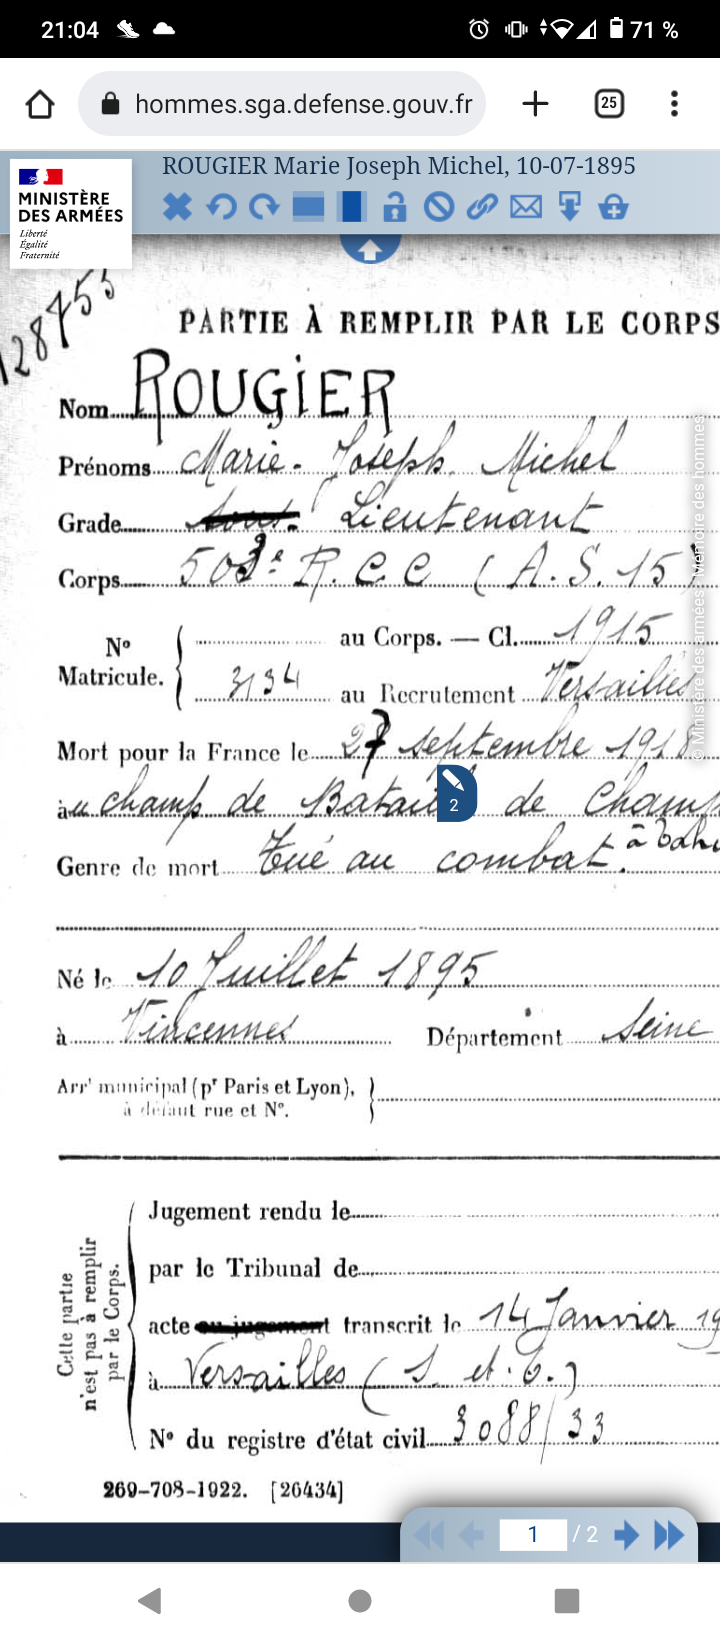 21:04 71 %
hommes.sga.defense.gouv.fr 25
ROUGIER Marie Joseph Michel, 10-07-1895
MINISTÈRE
DES ARMÉES
Liberté
Égalité
Fraternité
128753
PARTIE À REMPLIR PAR LE CORPS
Nom ROUGIER
Prénoms Marie-Joseph Michel
Grade Lieutenant
Corps 503e R.C.C (A.S.15)
No
Matricule.
au Corps. — Cl. 1915
3134 au Recrutement Versailles
Mort pour la France le 27 septembre 1918
à au champ de Batail de Champ
2
Genre de mort Tué au combat. à Tahu
Né le 10 Juillet 1895
à Vincennes Département Seine
Arrt municipal (pr Paris et Lyon),
à défaut rue et No.
Cette partie
n'est pas à remplir
par le Corps.
Jugement rendu le
par le Tribunal de
acte ou jugement transcrit le 14 Janvier 19
à Versailles (S. et. O.)
No du registre d'état civil 3088/33
269-708-1922. [26434]
© Ministère des armées - Mémoire des hommes
1 / 2